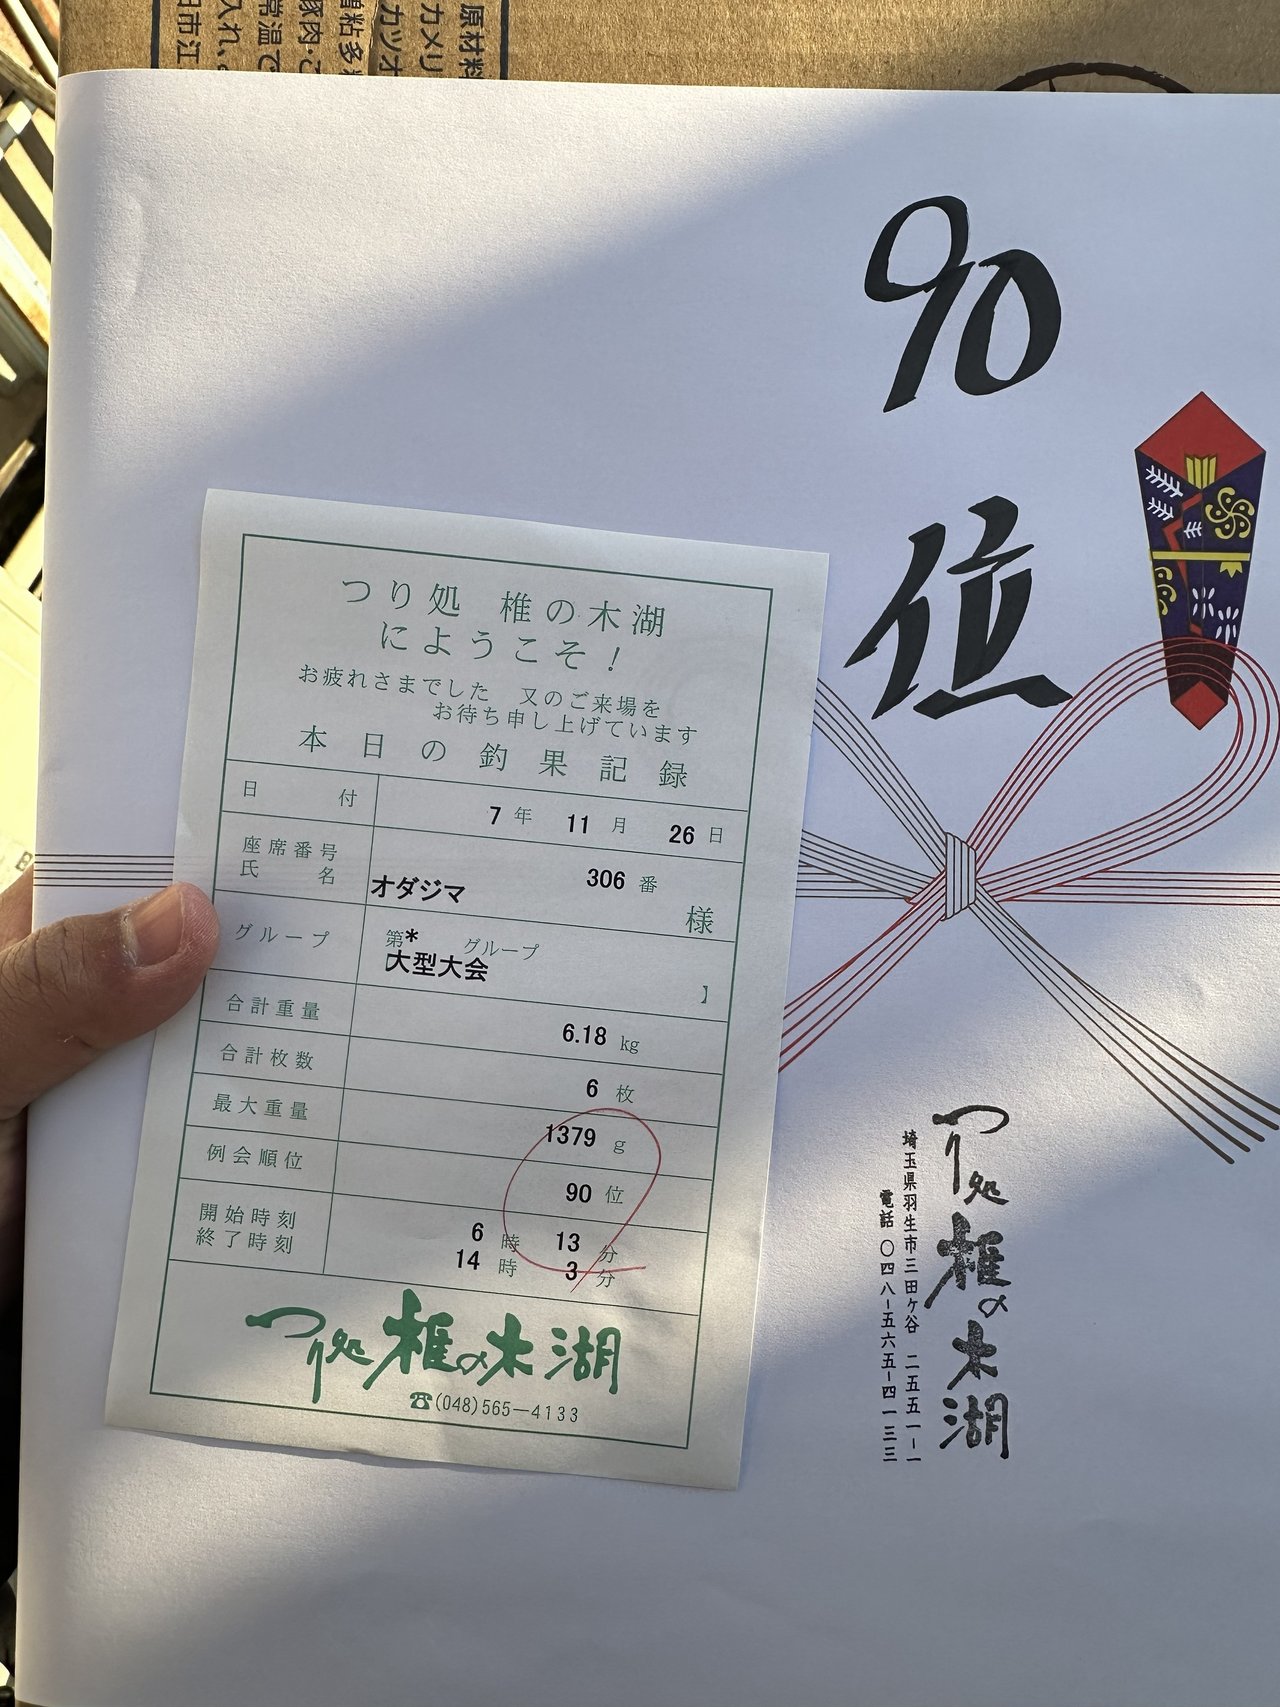 原材料
カメリ
カツオ
粘多
豚肉・ご
常温で
入れ、
田市江
90
位
つり処 椎の木湖
にようこそ！
お疲れさまでした 又のご来場を
お待ち申し上げています
本日の釣果記録
日付 7年 11月 26日
座席番号 306番
氏名 オダジマ 様
グループ 第* グループ
大型大会 】
合計重量 6.18 kg
合計枚数 6 枚
最大重量 1379 g
例会順位 90 位
開始時刻 6 時 13 分
終了時刻 14 時 3 分
つり処 椎の木湖
☎(048)565―4133
つり処 椎の木湖
埼玉県羽生市三田ヶ谷 二五五一ー一
電話 〇四八ー五六五ー四一三三